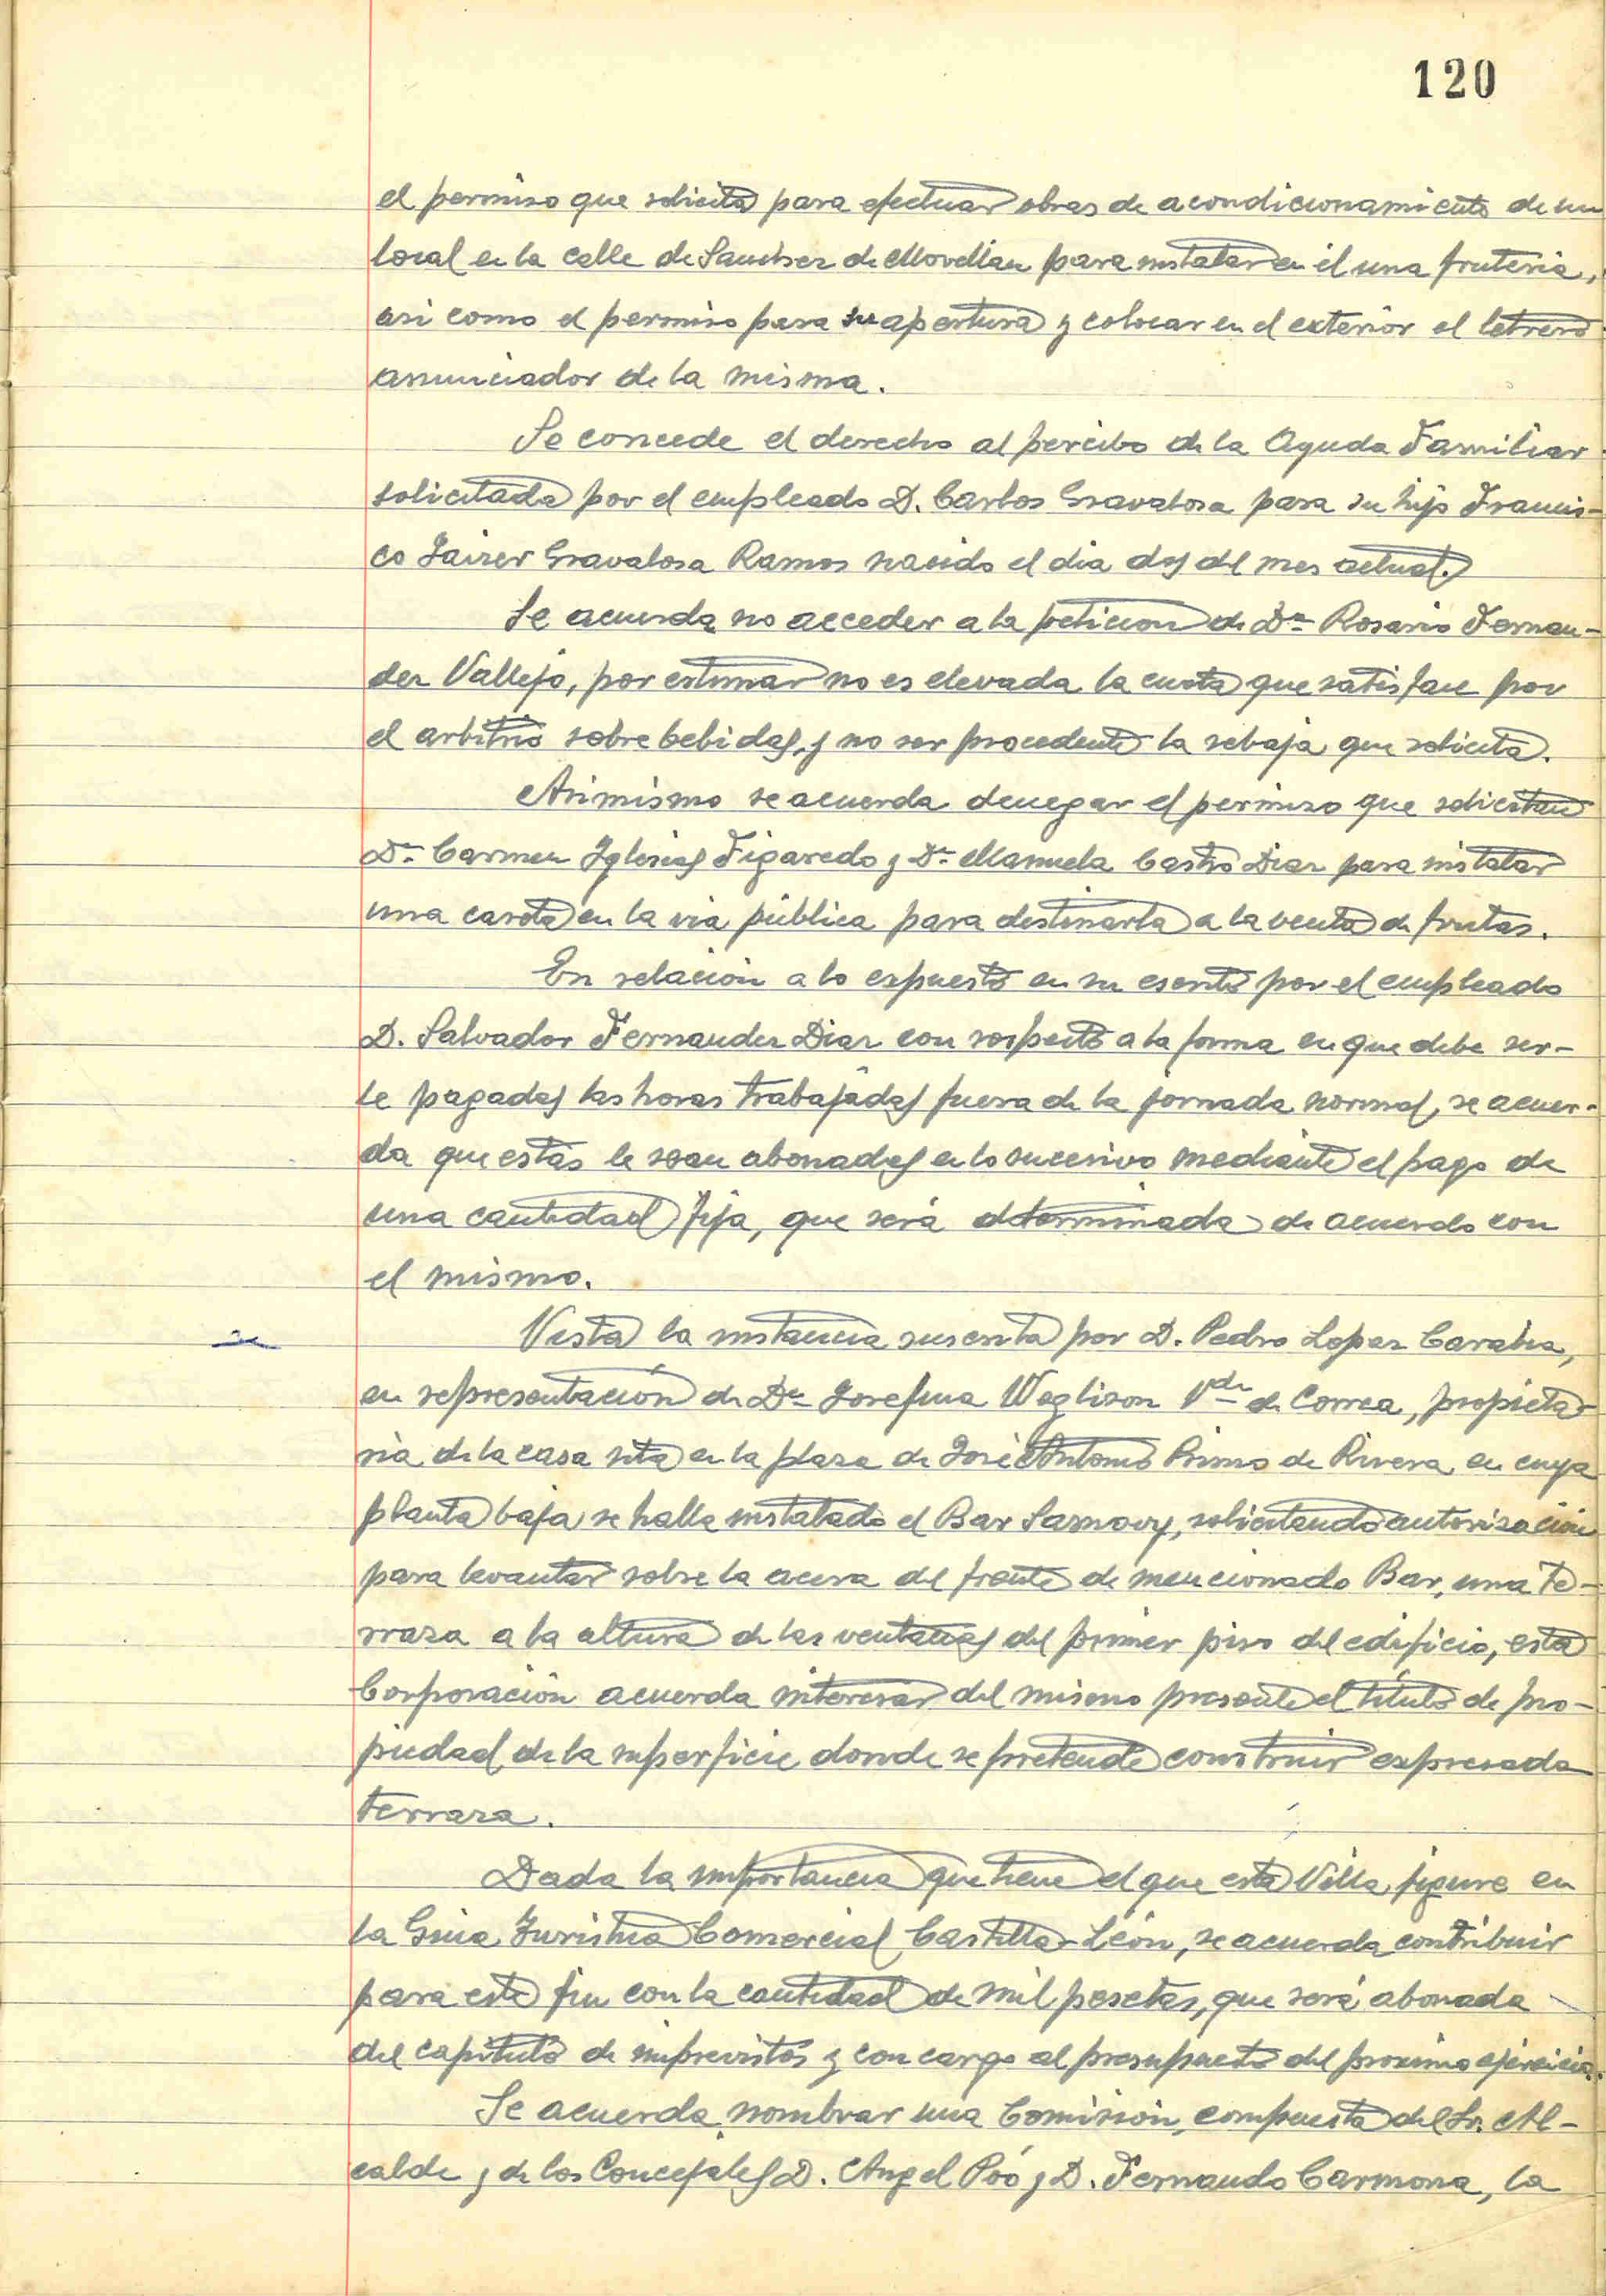 120
el permiso que solicita para efectuar obras de acondicionamiento de un
local en la calle de Sanchez de Movellan para instalar en él una fruteria,
asi como el permiso para su apertura y colocar en el exterior el letrero
anunciador de la misma.
Se concede el derecho al percibo de la Ayuda Familiar
solicitada por el empleado D. Carlos Gravalosa para su hijo Francis-
co Javier Gravalosa Ramos nacido el dia dos del mes actual.
Se acuerda no acceder a la peticion de Dª Rosario Fernan-
dez Vallejo, por estimar no es elevada la cuota que satisface por
el arbitrio sobre bebidas, y no ser procedente la rebaja que solicita.
Asimismo se acuerda denegar el permiso que solicitan
Dª Carmen Iglesias Figaredo y Dª Manuela Castro Diaz para instalar
una caseta en la via pública para destinarla a la venta de frutas.
En relación a lo expuesto en su escrito por el empleado
D. Salvador Fernandez Diaz con respecto a la forma en que debe ser-
le pagadas las horas trabajadas fuera de la jornada normal, se acuer-
da que estas le sean abonadas en lo sucesivo mediante el pago de
una cantidad fija, que será determinada de acuerdo con
el mismo.
Vista la instancia suscrita por D. Pedro Lopez
en representación de Dª Josefina Weglison Vda de Correa, propieta-
ria de la casa sita en la plaza de José Antonio Primo de Rivera, en cuya
planta baja se halla instalado el Bar Samovy, solicitando autorización
para levantar sobre la acera del frente de mencionado Bar, una te-
rraza a la altura de las ventanas del primer piso del edificio, esta
Corporación acuerda interesar del mismo presente el título de pro-
piedad de la superficie donde se pretende construir expresada
terraza.
Dada la importancia que tiene el que esta Villa figure en
la Guia Turistica Comercial Castilla-León, se acuerda contribuir
para este fin con la cantidad de mil pesetas, que será abonada
del capítulo de imprevistos y con cargo al presupuesto del proximo ejercicio.
Se acuerda nombrar una Comisión, compuesta del Sr. Al-
calde y de los Concejales D. Angel Poó y D. Fernando Carmona, la